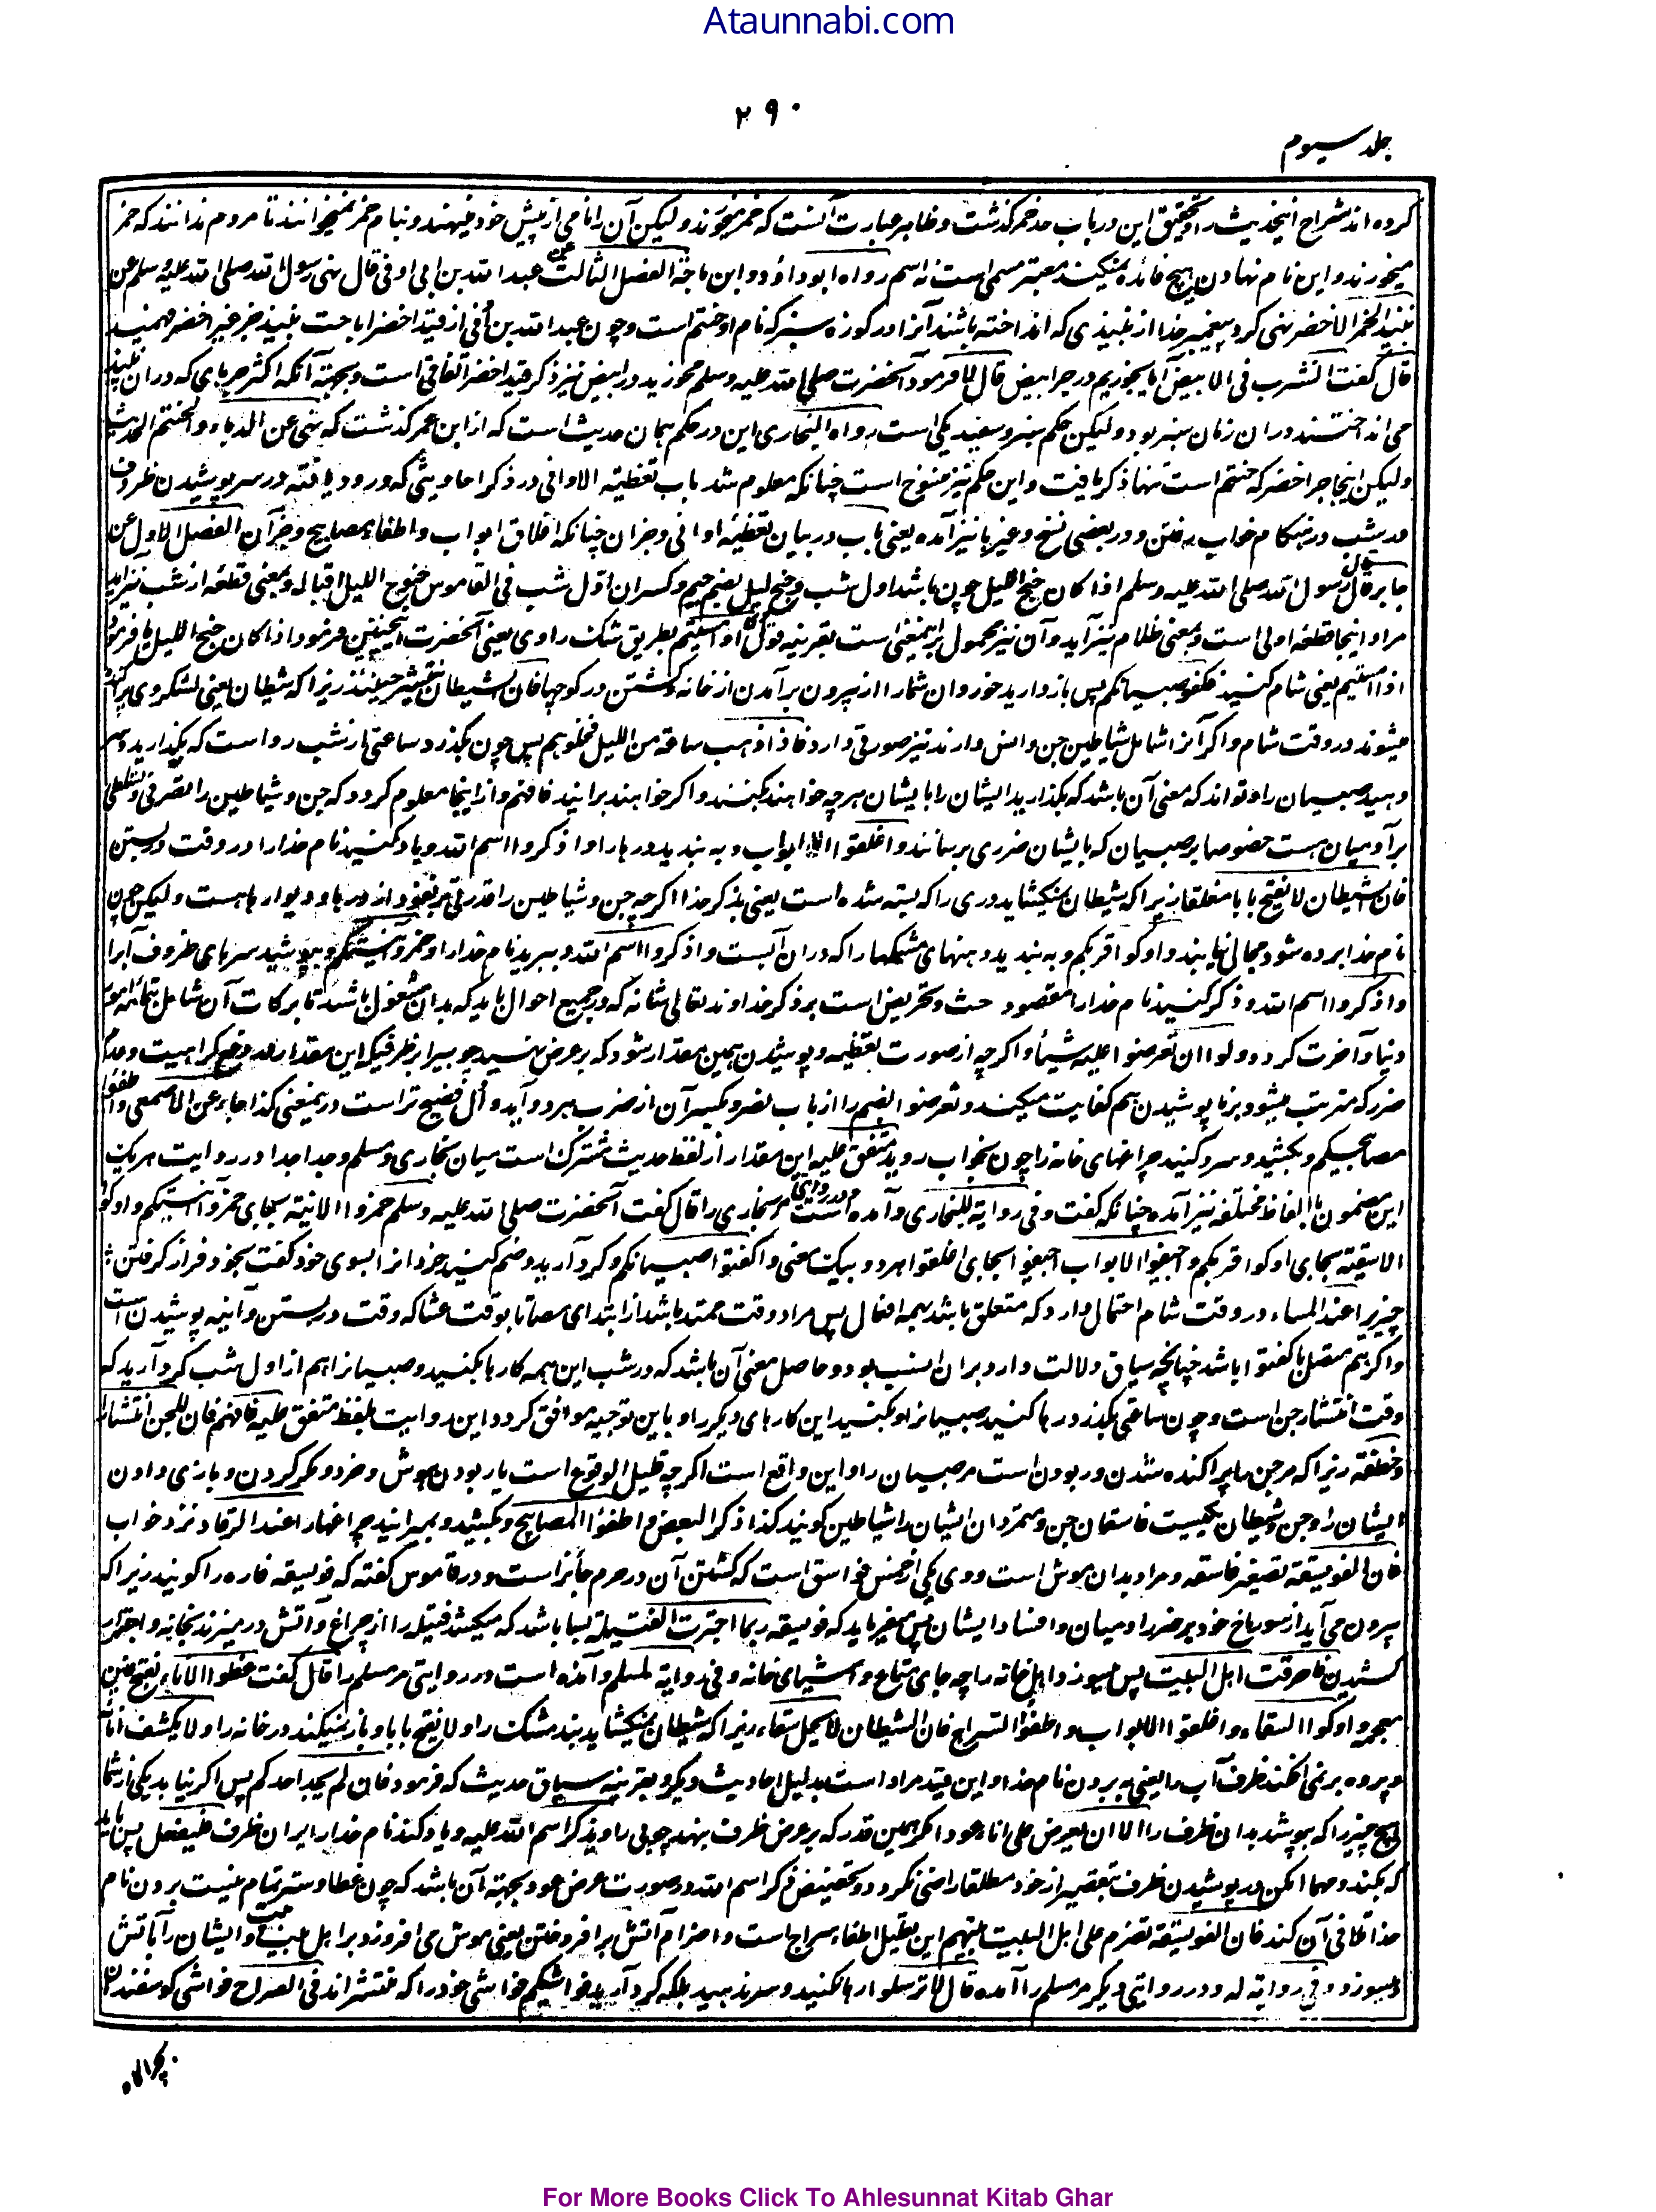 Ataunnabi.com
۲۹۰
جلد سیوم
کرده اند شراح اینحدیث را و تحقیق این در باب حد خمر گذشت و ظاهر عبارت آنست که خمر میخورند و لیکن آن را نامی از پیش خود مینهند و بنام خمر نمیخوانند تا مردم ندانند که خمر
میخورند و این نام نهادن هیچ فائده نمیکند معتبر مسمی است نه اسم رواه ابو داؤد و ابن ماجة الفصل الثالث عن عبد الله بن ابی اوفی قال نهی رسول الله صلی الله علیه وسلم عن
نبیذ الجر الاخضر نهی کرد پیغمبر خدا از نبیذی که انداخته باشند آنرا در کوزه سبز که نام او ختم است و چون عبد الله بن اوفی از قید اخضر اباحت نبیذ جر غیر اخضر فهمید
قال گفت انشرب فی الابیض آیا بخوریم در جر ابیض قال لا فرمود آنحضرت صلی الله علیه وسلم مخورید در ابیض نیز ذکر قید اخضر اتفاقی است و بجهته آنکه اکثر جرهای که در ان نبیذ
می انداختند در ان زمان سبز بود و لیکن حکم سبز و سفید یکی است رواه البخاری این در حکم همان حدیث است که از ابن عمر گذشت که نهی عن الدباء و الحنتم الحدیث
و لیکن اینجا جر اخضر که حنتم است تنها ذکر یافت و این حکم نیز منسوخ است چنانکه معلوم شد باب تغطیة الاوانی در ذکر احادیثی که ورود یافته در سر پوشیدن ظروف
در شب در هنگام خواب رفتن و در بعضی نسخ و غیرها نیز آمده یعنی باب در بیان تغطیه اوانی و جزان چنانکه اغلاق ابواب و اطفاء مصابیح و جز آن الفصل الاول عن
جابر قال قال رسول الله صلی الله علیه وسلم اذا کان جنح اللیل چون باشد اول شب و جنح لیل بضم جیم و کسر ان اول شب فی القاموس جنوح اللیل اقباله و بمعنی قطعه از شب نیز آید
مراد اینجا قطعه اولی است و بمعنی ظلام نیز آید و آن نیز محمول بر اینمعنی است بقرینه قول او او امسیتم بطریق شک راوی یعنی آنحضرت اینچنین فرمود اذا کان جنح اللیل یا فرمود
اذا امسیتم یعنی شام کنید فکفوا صبیانکم پس باز دارید خوردان شما را از بیرون برآمدن از خانه و گشتن در کوچها فان الشیطان ینتشر حینئذ زیرا که شیطان یعنی لشکر وی پراکنده
میشوند در وقت شام و اگر آنرا شامل شیاطین جن و انس دارند نیز صورتی دارد فاذا ذهب ساعة من اللیل فخلوهم پس چون بگذرد ساعتی از شب روا است که بگذارید و سر
دهید صبیان را و تواند که معنی آن باشد که بگذارید ایشان را با ایشان هرچه خواهند بکنند و اگر خواهند برانید فافهم و از اینجا معلوم گردد که جن و شیاطین را تصرفی و تسلطی
بر آدمیان هست خصوصا بر صبیان که بایشان ضرری برسانند و اغلقوا الابواب و به بندید درها را و اذکروا اسم الله و یاد کنید نام خدا را در وقت در بستن
فان الشیطان لا یفتح بابا مغلقا زیرا که شیطان نمیکشاید دری را که بسته شده است یعنی بذکر خدا اگرچه جن و شیاطین را قدرتی بر نفوذ از درها و دیوارها هست و لیکن چون
نام خدا برده شود مجالی نیابند و اوکوا قربکم و به بندید دهنهای مشکها را که در ان آبست و اذکروا اسم الله و ببرید نام خدا را و خمروا آنیتکم و بپوشید سرهای ظروف آب را
و اذکروا اسم الله و ذکر کنید نام خدا را مقصود حث و تحریض است بر ذکر خداوند تعالی شانه که در جمیع احوال باید که بدان مشغول باشد تا برکات آن شامل تمامه امور
دنیا و آخرت گردد و لو ان تعرضوا علیه شیئا و اگرچه از صورت تغطیه و پوشیدن همین مقدار شود که برعرض نهید چوبی را بر ظرف که این مقدار در دفع کراهیت و عدم
ضرر که مترتب میشود بر نا پوشیدن هم کفایت میکند و تعرضوا بضم را از باب نصر و بکسر آن از ضرب هر دو آید و اول فصیح تر است در اینمعنی کذا جاء عن الاصمعی و اطفئوا
مصابیحکم و بکشید و سرد کنید چراغهای خانه را چون بخواب روید متفق علیه این مقدار از لفظ حدیث مشترک است میان بخاری و مسلم و جدا جدا در روایت هر یک
این مضمون با الفاظ مختلفه نیز آمده چنانکه گفت و فی روایة للبخاری و آمده است در روایتی مر بخاری را قال گفت آنحضرت صلی الله علیه وسلم خمروا الانیة بجای خمروا آنیتکم و اوکوا
الاسقیة بجای اوکوا قربکم و اجیفوا الابواب اجیفوا بجای اغلقوا هر دو بیک معنی و اکفتوا صبیانکم و گرد آرید و ضم کنید خردانرا بسوی خود کفت بخود فراز گرفتن
چیزیرا عند المساء در وقت شام احتمال دارد که متعلق باشد بهمه افعال پس مراد وقت ممتد باشد از ابتدای مسا تا بوقت عشا که وقت در بستن و آنیه پوشیدن است
و اگر هم متصل با کفتوا باشد چنانچه سیاق دلالت دارد بران انسب بود و حاصل معنی آن باشد که در شب این همه کارها بکنید و صبیانرا هم از اول شب گرد آرید که
وقت انتشار جن است و چون ساعتی بگذرد رها کنید صبیانرا و بکنید این کارهای دیگر را و باین توجیه موافق گردد این روایت بلفظ متفق علیه فافهم فان للجن انتشارا
و خطفة زیرا که مر جن را پراکنده شدن و ربودن است مر صبیان را و این واقع است اگرچه قلیل الوقوع است یا ربودن هوش و خرد و مکر کردن و بازی دادن
ایشان را و جن و شیطان یکیست فاسقان جن و متمردان ایشان را شیاطین گویند کذا ذکر البعض و اطفئوا المصابیح و بکشید و بمیرانید چراغها را عند الرقاد نزد خواب
فان الفویسقة تصغیر فاسقه و مراد بدان موش است و وی یکی از خمس فواسق است که کشتن آن در حرم جائز است و در قاموس گفته که فویسقه فاره را گویند زیرا که
بیرون می آید از سوراخ خود بر ضرر ادمیان و افساد ایشان پس میفرماید که فویسقه ربما اجترت الفتیلة بسا باشد که میکشد فتیله را از چراغ و آتش در میزند بخانه و اجترار
کشیدن فاحرقت اهل البیت پس میسوزد اهل خانه را چه جای متاع و اشیای خانه و فی روایة لمسلم و آمده است در روایتی مر مسلم را قال گفت غطوا الاناء بفتح غین
معجمه و اوکوا السقاء و اغلقوا الابواب و اطفئوا السراج فان الشیطان لا یحل سقاء زیرا که شیطان نمیکشاید بند مشک را و لا یفتح بابا و باز نمیکند در خانه را و لا یکشف اناء
و پرده بر نمی افکند ظرف آب را یعنی به بردن نام خدا و این قید مراد است بدلیل احادیث دیگر و بقرینه سیاق حدیث که فرمود فان لم یجد احدکم پس اگر نیابد یکی از شما
هیچ چیزی را که بپوشد بدان ظرف را الا ان یعرض علی اناءه عودا مگر همین قدر که برعرض ظرف بنهد چوبی را و یذکر اسم الله علیه و یاد کند نام خدا را بران ظرف فلیفعل پس باید
که بکند و مهما امکن در پوشیدن ظرف بتقصیر از خود مطلقا راضی نگردد و تخصیص ذکر اسم الله در صورت عرض عود بجهته آن باشد که چون غطا و ستر تمام نیست بردن نام
خدا تلافی آن کند فان الفویسقة تضرم علی اهل البیت بیتهم این تعلیل اطفاء سراج است و اضرام آتش برافروختن یعنی موش می افروزد بر اهل بیت و ایشان را بآتش
میسوزد و فی روایة له و در روایتی دیگر مر مسلم را آمده قال لا ترسلوا رها نکنید و سر ندهید بلکه گرد آرید فواشیکم مواشی خود را که منتشر اند فی الصراح فواشی گوسفندان
For More Books Click To Ahlesunnat Kitab Ghar